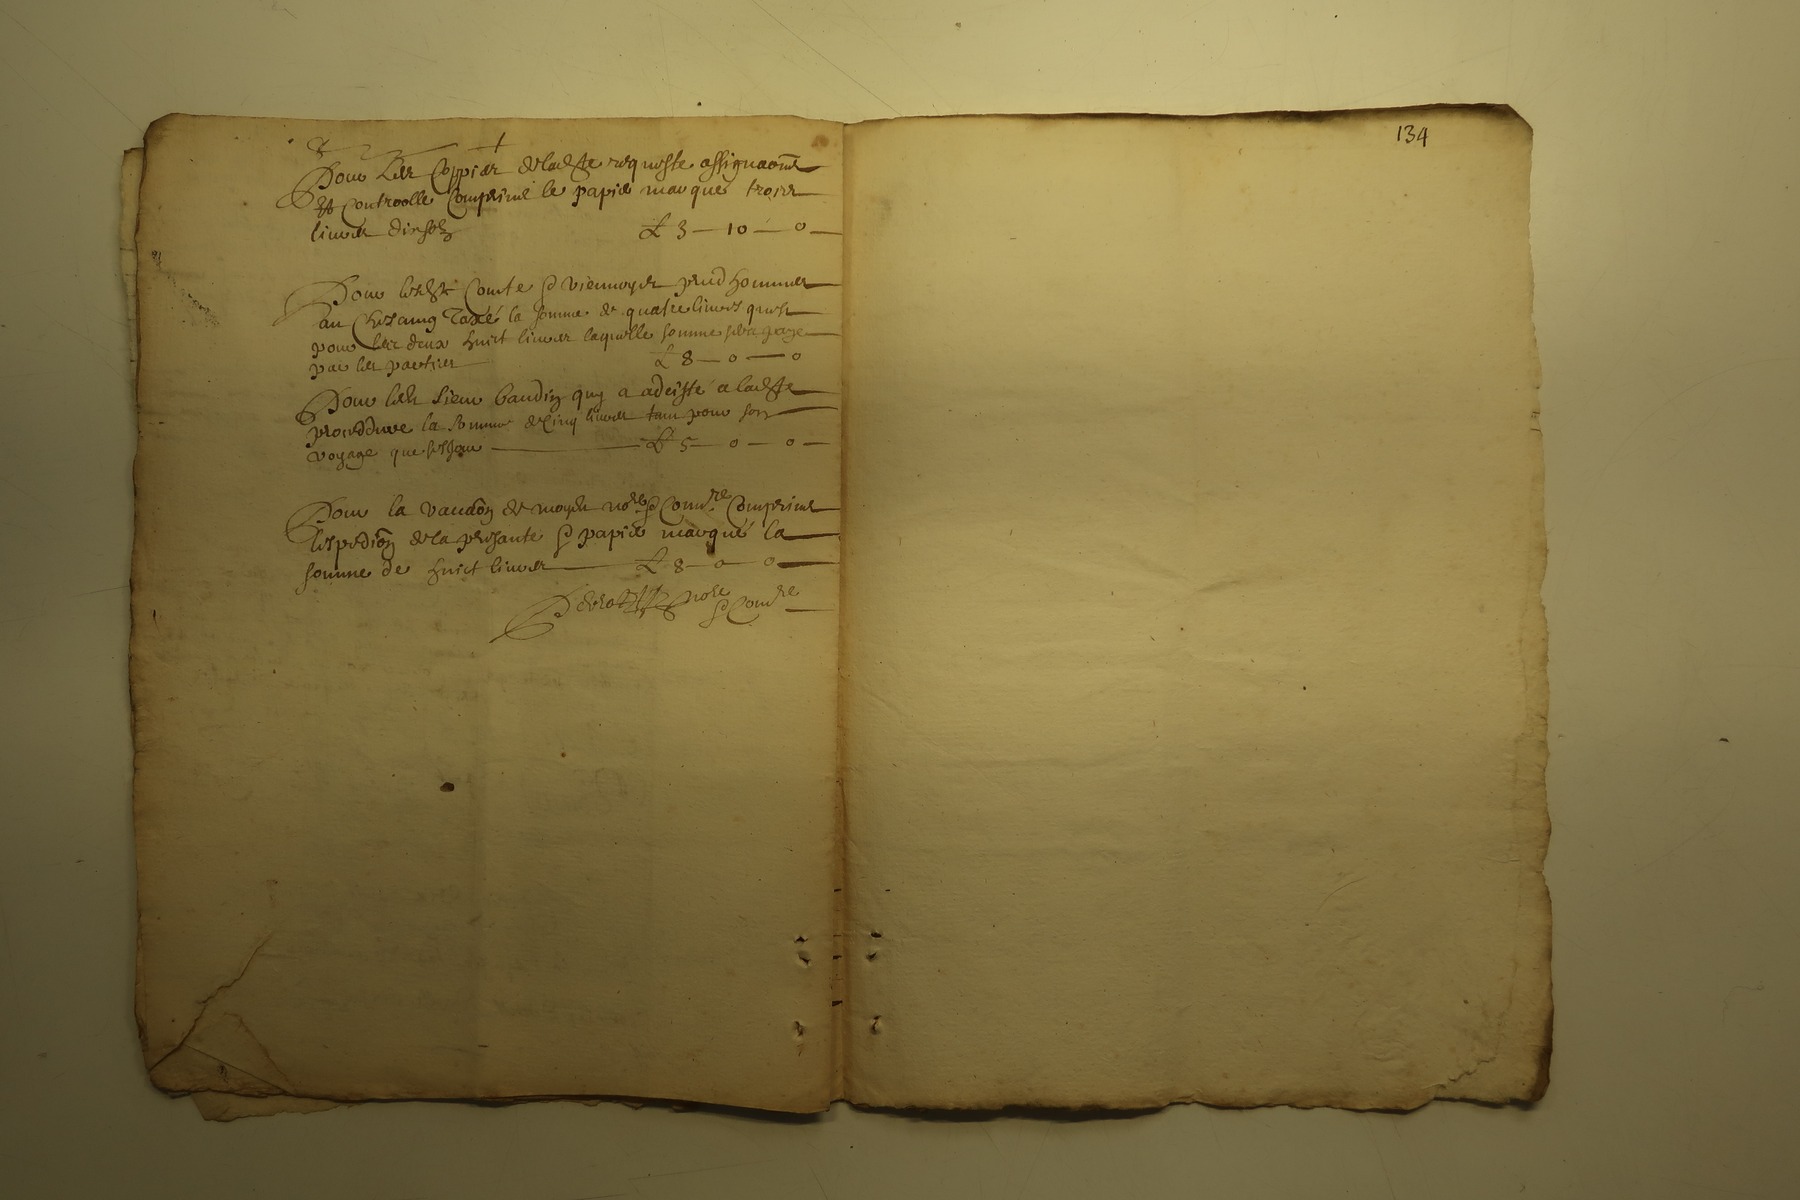 134
Pour les coppies de ladte requeste assignaõns
et controolle comprins le papier marqué trois
livres dix solz £ 3 — 10 — 0
Pour lesdt Comte & viennoyes prud hommes
au chescung taxé la somme de quatre livres quest
pour les deux huict livres laquelle somme sera paye
par les parties £ 8 — 0 — 0
Pour led sieur baudin quy a adcisté a ladte
proceddure la somme de cinq livres tant pour son
voyage que sejour £ 5 — 0 — 0
Pour la vacaõn de moyd nore & Comre comprins
lespediõn de la presante & papier marqué la
somme de huict livres £ 8 — 0 — 0
nore
& Comre